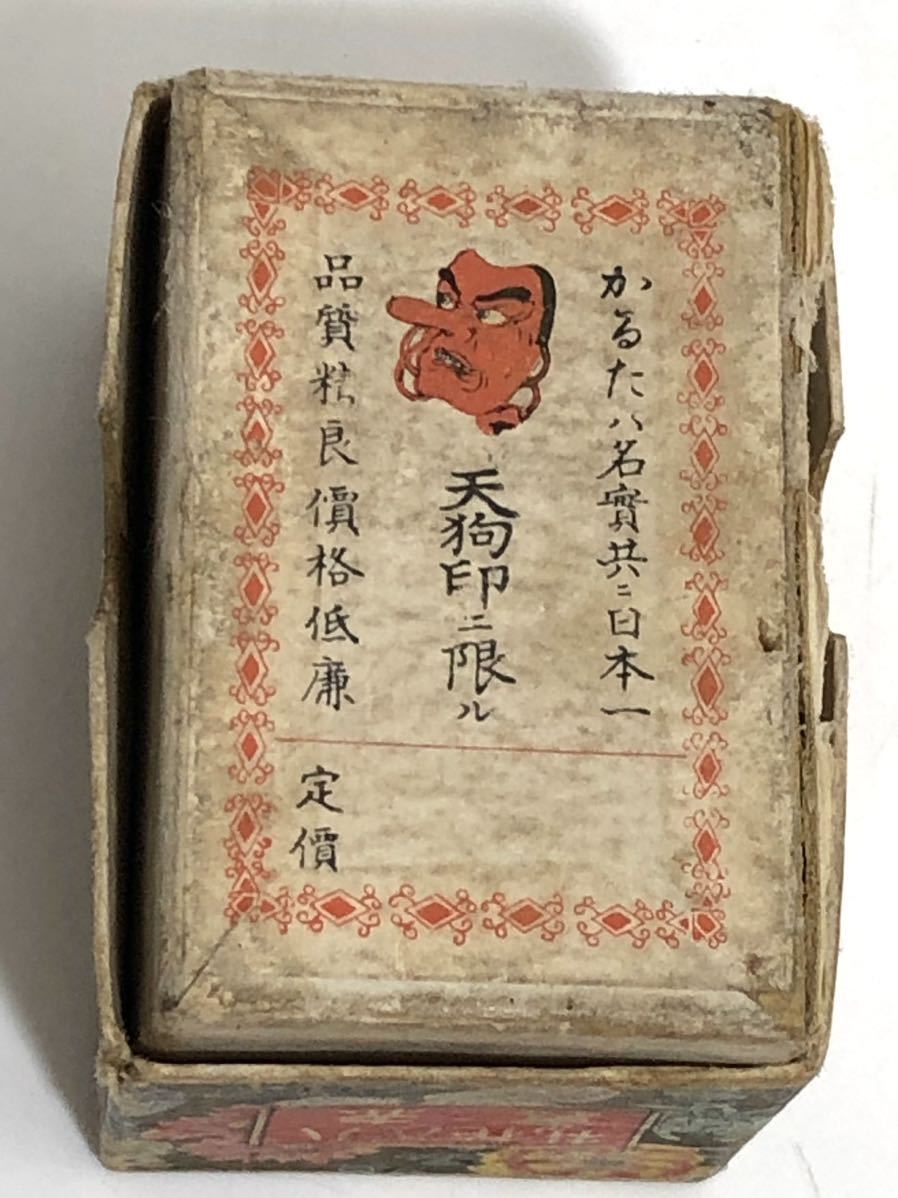 かるたハ名實共ニ日本一
天狗印ニ限ル
品質精良價格低廉
定價